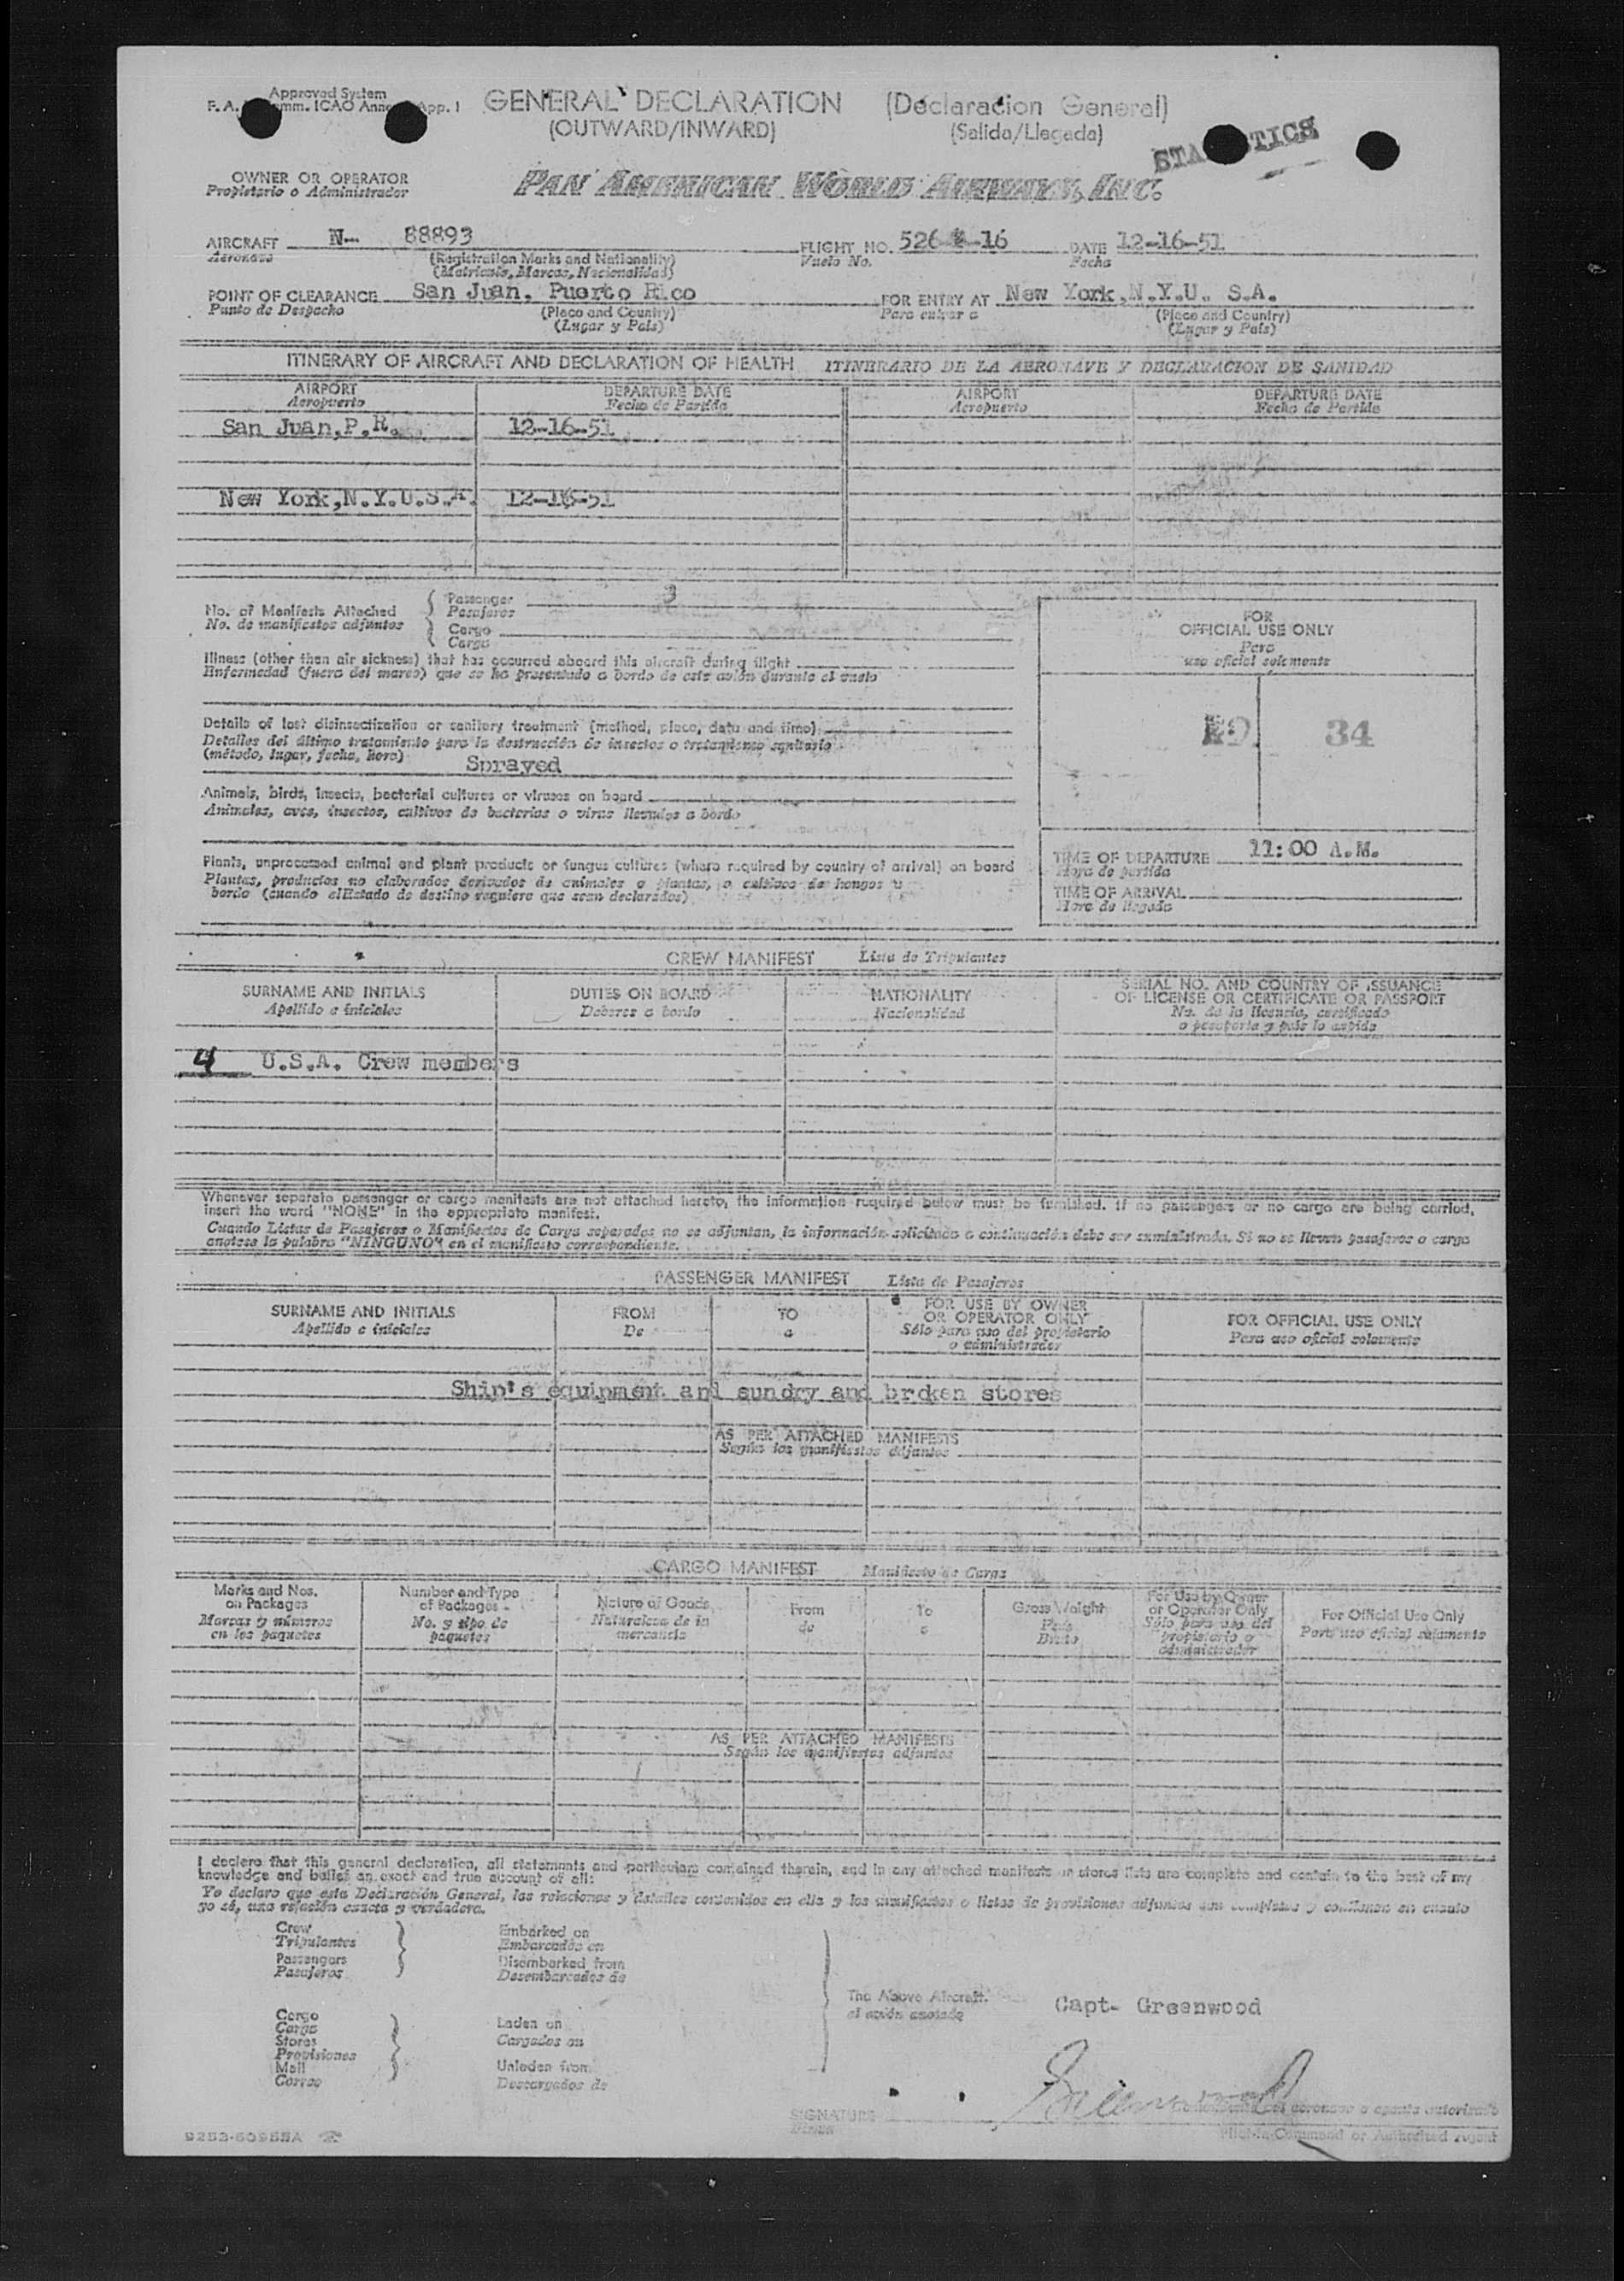 Approved System
GENERAL DECLARATION (Declaracion General)
(OUTWARD/INWARD) (Salida/Llegada)
OWNER OR OPERATOR
Propietario o Administrador
PAN AMERICAN WORLD AIRWAYS, INC.
AIRCRAFT N- 88893 FLIGHT NO. 526 -16 DATE 12-16-51
Aeronave (Registration Marks and Nationality) Vuelo No. Fecha
(Matricula, Marcas, Nacionalidad)
POINT OF CLEARANCE San Juan, Puerto Rico FOR ENTRY AT New York,N.Y.U. S.A.
Punto de Despacho (Place and Country) Para entrar a (Place and Country)
(Lugar y País) (Lugar y País)
ITINERARY OF AIRCRAFT AND DECLARATION OF HEALTH ITINERARIO DE LA AERONAVE Y DECLARACION DE SANIDAD
AIRPORT DEPARTURE DATE AIRPORT DEPARTURE DATE
Aeropuerto Fecha de Partida Aeropuerto Fecha de Partida
San Juan,P.R. 12-16-51
New York,N.Y.U.S.A. 12-16-51
No. of Manifests Attached
No. de manifiestos adjuntos
Passenger 3
Pasajeros
Cargo
Carga
Illness (other than air sickness) that has occurred aboard this aircraft during flight
Enfermedad (fuera del mareo) que se ha presentado a bordo de este avión durante el vuelo
Details of last disinsectization or sanitary treatment (method, place, date and time)
Detalles del último tratamiento para la destrucción de insectos o tratamiento sanitario
(método, lugar, fecha, hora)
Sprayed
Animals, birds, insects, bacterial cultures or viruses on board
Animales, aves, insectos, cultivos de bacterias o virus llevados a bordo
Plants, unprocessed animal and plant products or fungus cultures (where required by country of arrival) on board
Plantas, productos no elaborados derivados de animales o plantas, o cultivos de hongos a
bordo (cuando elEstado de destino requiera que sean declarados)
FOR
OFFICIAL USE ONLY
Para
uso oficial solamente
34
TIME OF DEPARTURE 11:00 A.M.
Hora de partida
TIME OF ARRIVAL
Hora de llegada
CREW MANIFEST Lista de Tripulantes
SURNAME AND INITIALS DUTIES ON BOARD NATIONALITY SERIAL NO. AND COUNTRY OF ISSUANCE
Apellido e iniciales Deberes a bordo Nacionalidad OF LICENSE OR CERTIFICATE OR PASSPORT
No. de la licencia, certificado
o pasaporte y país lo expide
4 U.S.A. Crew members
Whenever separate passenger or cargo manifests are not attached hereto, the information required below must be furnished. If no passengers or no cargo are being carried,
insert the word "NONE" in the appropriate manifest.
Cuando Listas de Pasajeros o Manifiestos de Carga separados no se adjuntan, la información solicitada a continuación debe ser suministrada. Si no se llevan pasajeros o carga
anotese la palabra "NINGUNO" en el manifiesto correspondiente.
PASSENGER MANIFEST Lista de Pasajeros
SURNAME AND INITIALS FROM TO FOR USE BY OWNER FOR OFFICIAL USE ONLY
Apellido e iniciales De a OR OPERATOR ONLY Para uso oficial solamente
Sólo para uso del propietario
o administrador
Ship's equipment and sundry and broken stores
AS PER ATTACHED MANIFESTS
Según los manifiestos adjuntos
CARGO MANIFEST Manifiesto de Carga
Marks and Nos. Number and Type Nature of Goods From To Gross Weight For Use by Owner For Official Use Only
on Packages of Packages Naturaleza de la de a Peso or Operator Only Para uso oficial solamente
Marcas y números No. y tipo de mercancía Bruto Sólo para uso del
en los paquetes paquetes propietario o
administrador
AS PER ATTACHED MANIFESTS
Según los manifiestos adjuntos
I declare that this general declaration, all statements and particulars contained therein, and in any attached manifests or stores lists are complete and contain to the best of my
knowledge and belief an exact and true account of all:
Yo declaro que esta Declaración General, las relaciones y detalles contenidos en ella y los manifiestos o listas de provisiones adjuntos son completos y contienen en cuanto
yo sé, una relación exacta y verdadera.
Crew Embarked on
Tripulantes Embarcados en
Passengers Disembarked from
Pasajeros Desembarcados de
The Above Aircraft.
el avión anotado
Capt- Greenwood
Cargo Laden on
Carga Cargados en
Stores
Provisiones
Mail Unladen from
Correo Descargados de
Greenwood
SIGNATURE aeronave o agente autorizado
Firma Pilot-in-Command or Authorized Agent
9253-60955A